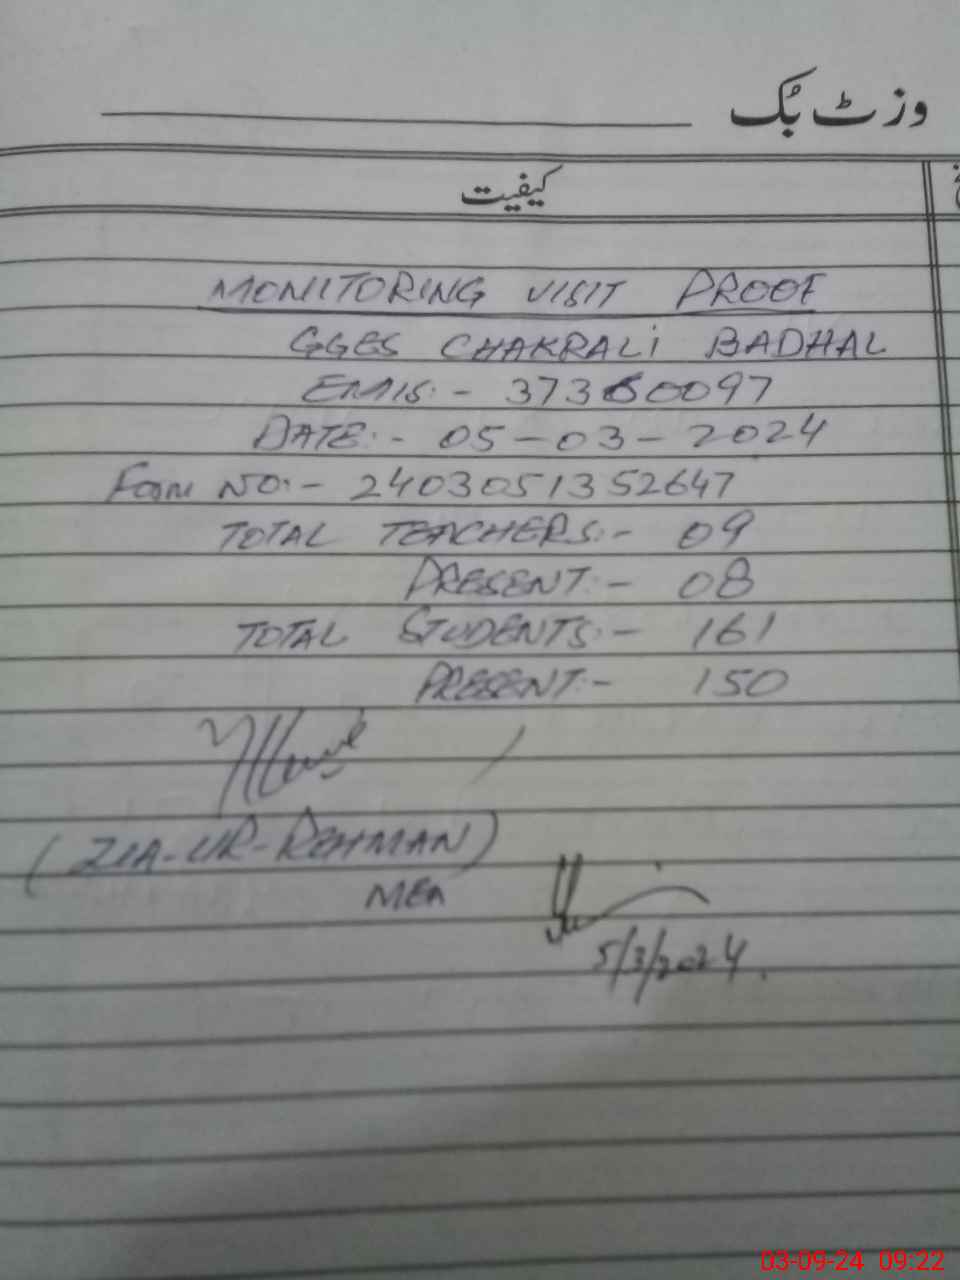 وزٹ بُک
کیفیت
MONITORING VISIT PROOF
GGES CHAKRALi BADHAL
EMIS:- 37360097
DATE:- 05-03-2024
Form NO:- 2403051352647
TOTAL TEACHERS:- 09
PRESENT:- 08
TOTAL STUDENTS:- 161
PRESENT:- 150
(ZIA-UR-REHMAN)
MEA
5/3/2024.
03-09-24 09:22